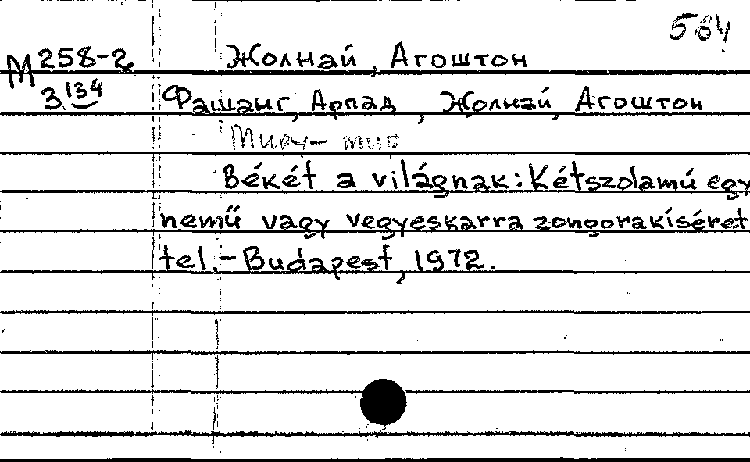 564
М 258-2 Жолнай, Агоштон
3 134 Фашанг, Арпад, Жолнай, Агоштон
Миру - мир
Békét a világnak: Kétszolamú egy
nemű vagy vegyeskarra zongorakíséret
tel. - Budapest, 1972.